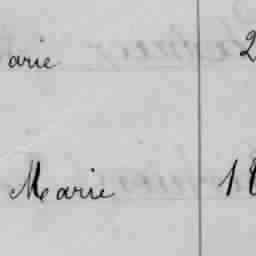 arie 2
Marie 18